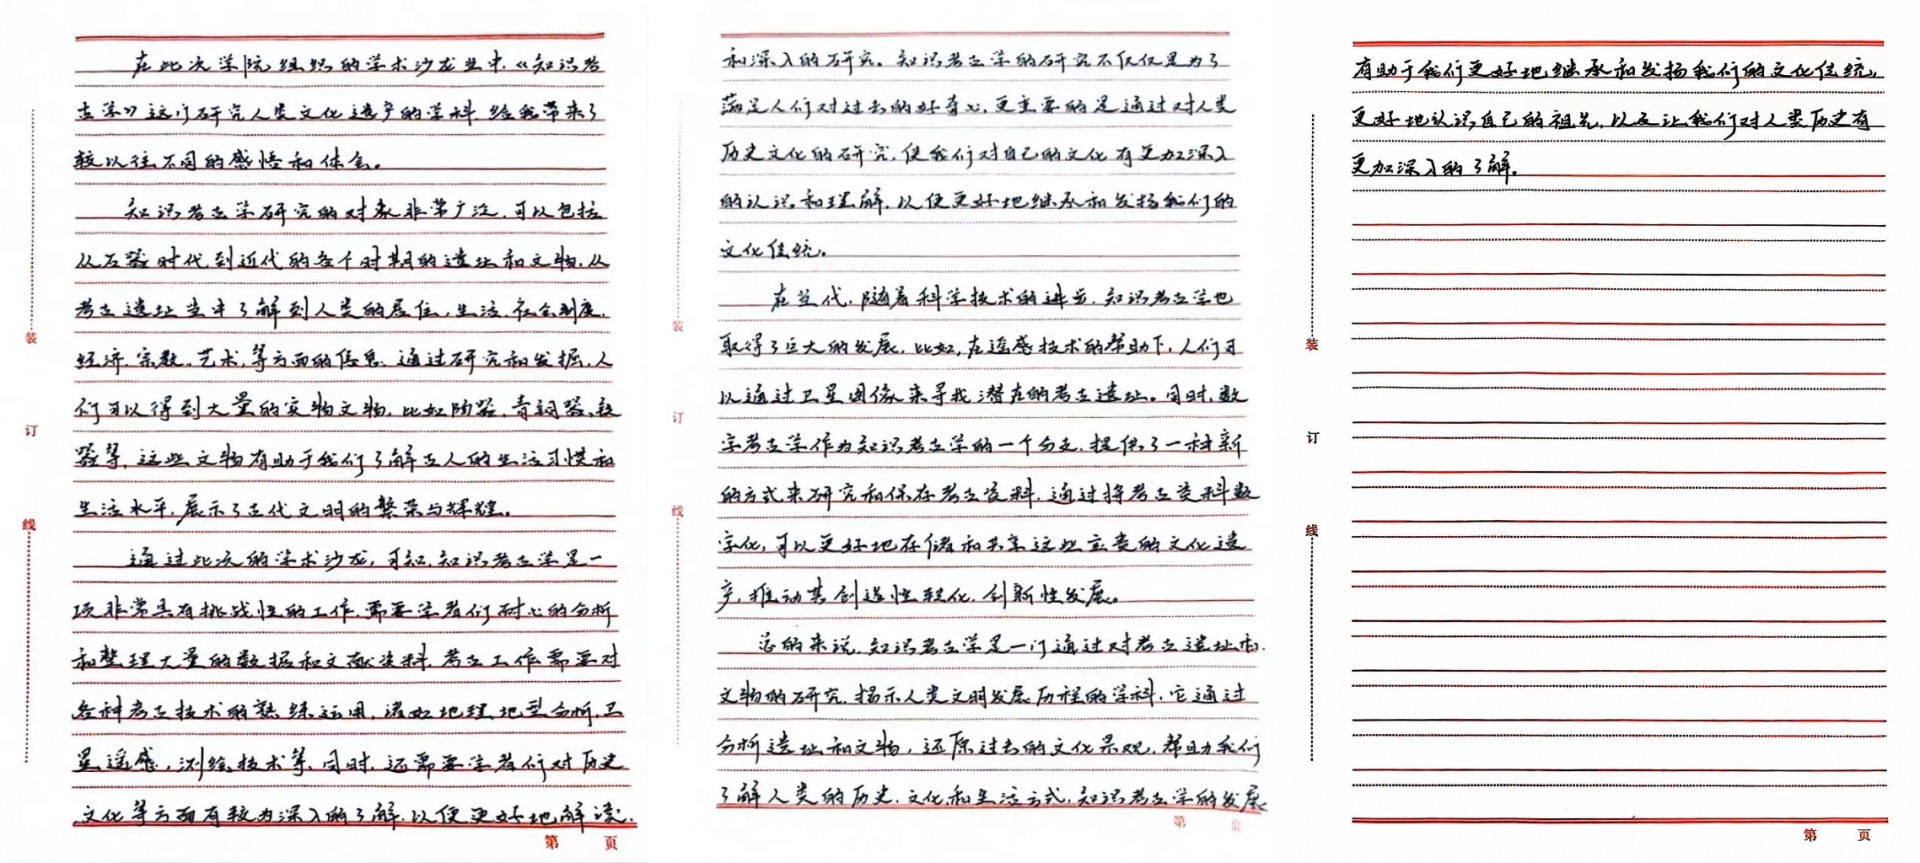 在此次学院组织的学术沙龙当中，《知识考
古学》这门研究人类文化遗产的学科给我带来了
较以往不同的感悟和体会。
知识考古学研究的对象非常广泛，可以包括
从石器时代到近代的各个时期的遗址和文物，从
考古遗址当中了解到人类的居住，生活、社会制度、
经济、宗教、艺术，等方面的信息，通过研究和发掘，人
们可以得到大量的实物文物，比如陶器，青铜器、铁
器等，这些文物有助于我们了解古人的生活习惯和
生活水平，展示了古代文明的繁荣与辉煌。
通过此次的学术沙龙，可知，知识考古学是一
项非常具有挑战性的工作，需要学者们耐心的分析
和整理大量的数据和文献资料，考古工作需要对
各种考古技术的熟练运用，诸如地理，地型分析，卫
星遥感，测绘技术等，同时，还需要学者们对历史
文化等方面有较为深入的了解，以便更好地解读
装
订
线
第 页
和深入的研究。知识考古学的研究不仅仅是为了
满足人们对过去的好奇心，更主要的是通过对人类
历史文化的研究，使我们对自己的文化有更加深入
的认识和理解，以便更好地继承和发扬我们的
文化传统。
在当代，随着科学技术的进步，知识考古学也
取得了巨大的发展，比如，在遥感技术的帮助下，人们可
以通过卫星图像来寻找潜在的考古遗址。同时，数
字考古学作为知识考古学的一个分支，提供了一种新
的方式来研究和保存考古资料，通过将考古资料数
字化，可以更好地存储和共享这些宝贵的文化遗
产，推动其创造性转化、创新性发展。
总的来说，知识考古学是一门通过对考古遗址和
文物的研究，揭示人类文明发展历程的学科，它通过
分析遗址和文物，还原过去的文化景观，帮助我们
了解人类的历史，文化和生活方式，知识考古学的发展
装
订
线
第 页
有助于我们更好地继承和发扬我们的文化传统，
更好地认识自己的祖先，以及让我们对人类历史有
更加深入的了解。
装
订
线
第 页